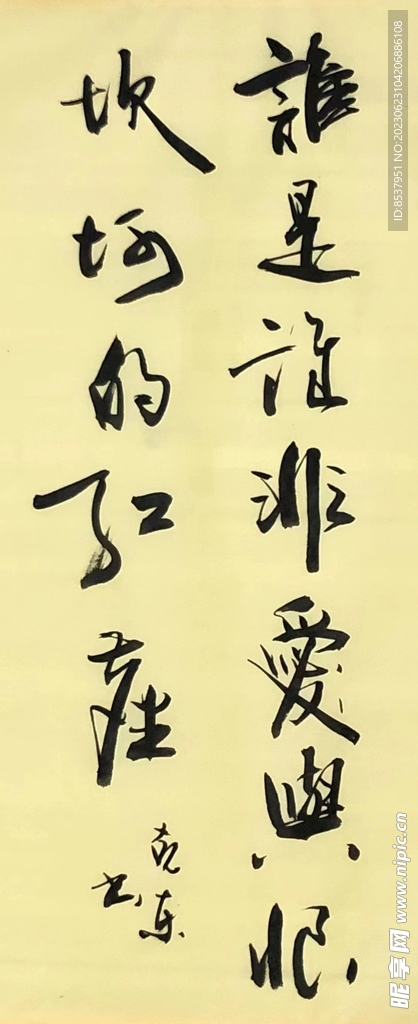 誰是誰非愛與恨
坎坷的红塵
克东
书
ID:8537951 NO:20230623104206886108
昵享网 www.nipic.cn